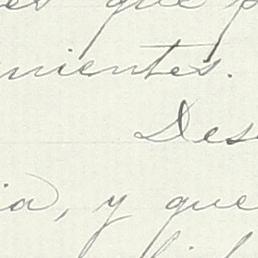 que
nientes.
Des
ia, y que